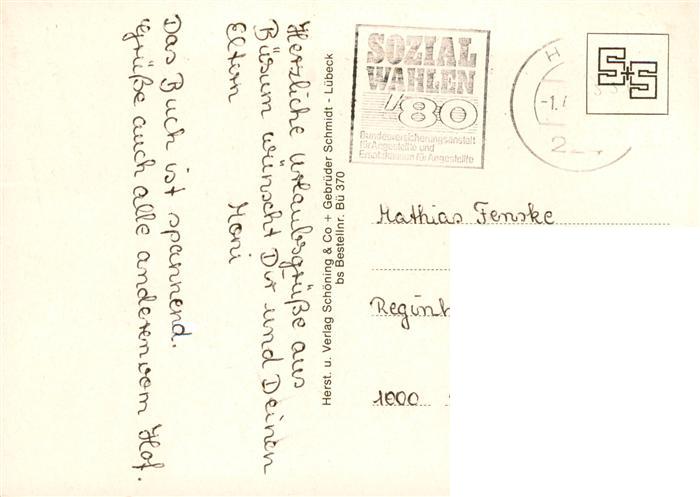 Herzliche Urlaubsgrüße aus
Büsum wünscht Dir und Deinen
Eltern Moni
Das Buch ist spannend.
Grüße auch alle anderen vom Hof.
Herst. u. Verlag Schöning & Co + Gebrüder Schmidt - Lübeck
bs Bestellnr. Bü 370
SOZIAL
WAHLEN
'80
Bundesversicherungsanstalt
für Angestellte und
Ersatzkassen für Angestellte
H
-1.
2
S+S
Mathias Fenske
1000